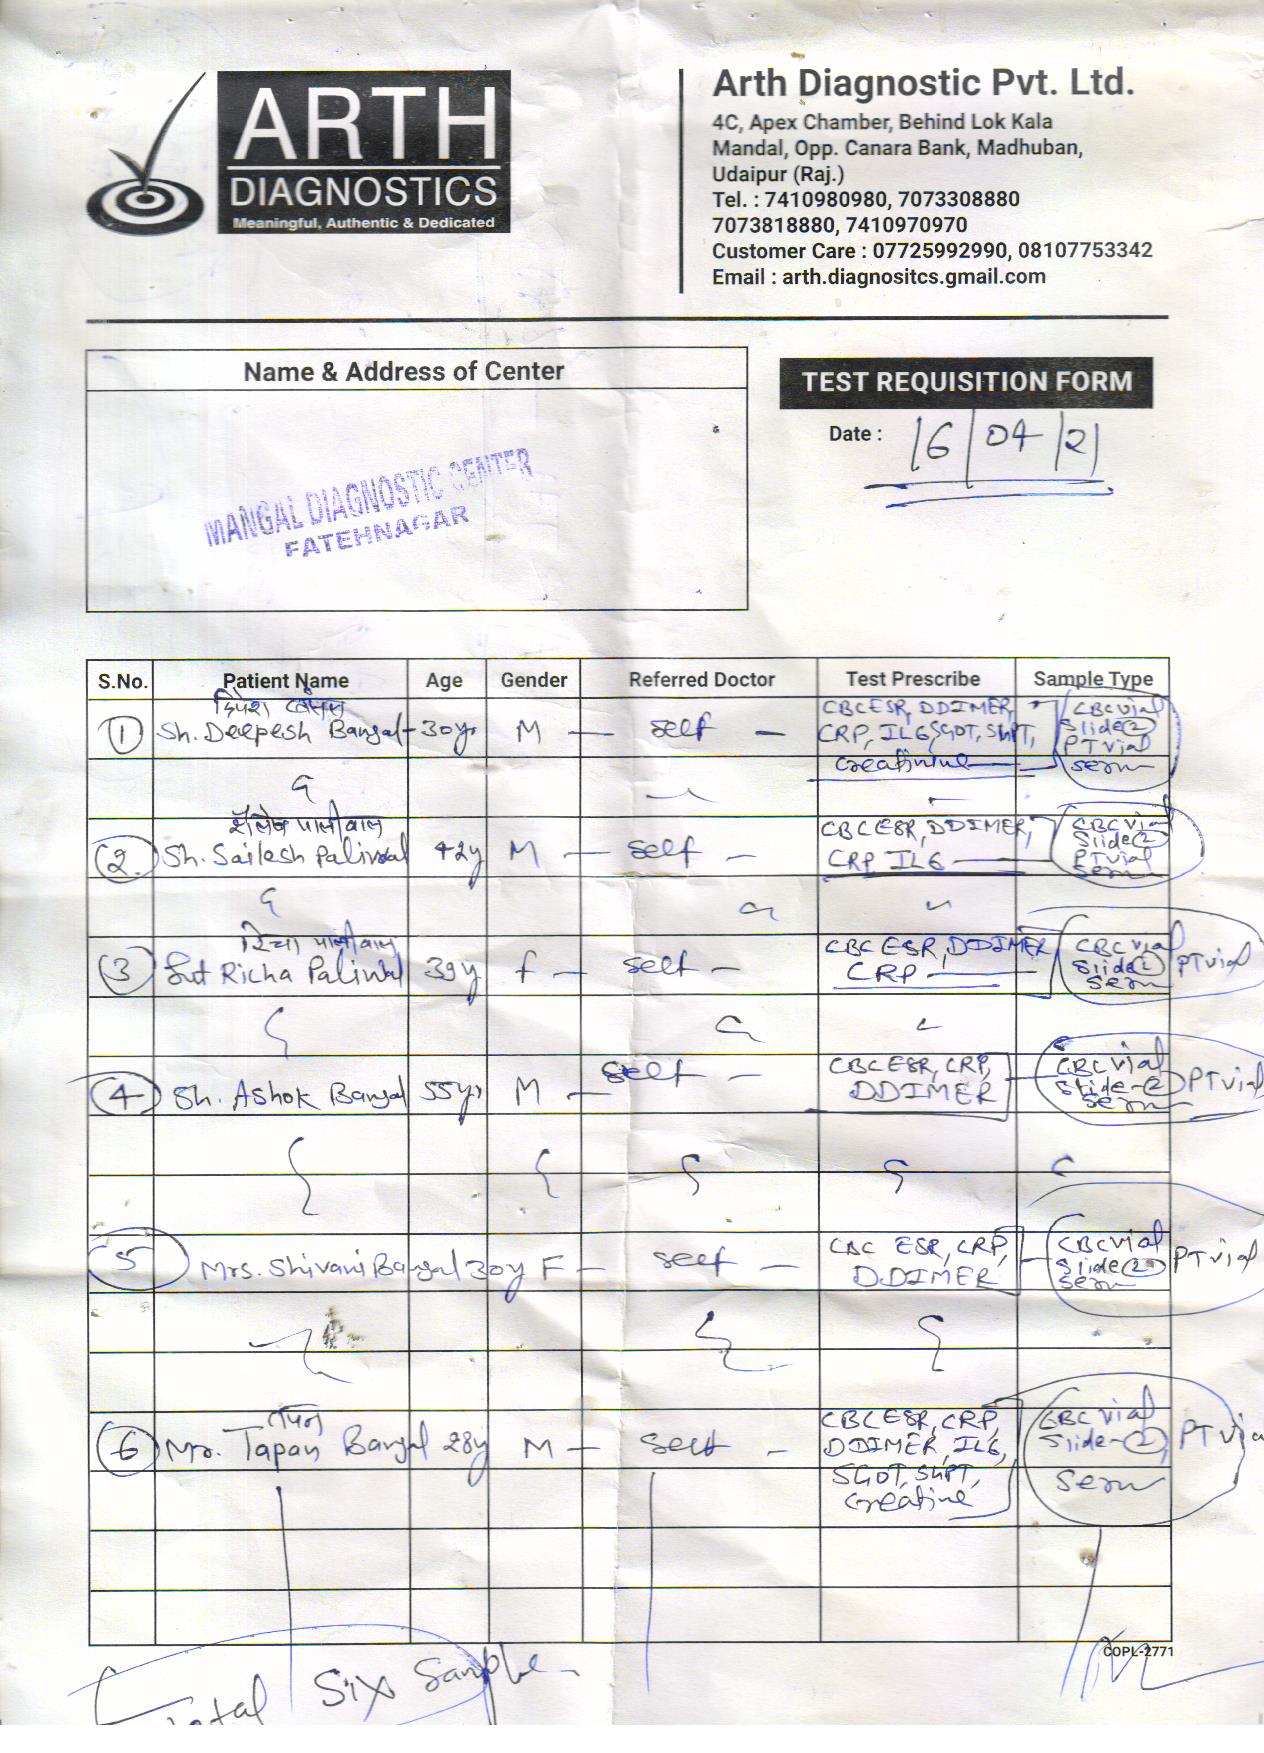 ARTH
DIAGNOSTICS
Meaningful, Authentic & Dedicated
Arth Diagnostic Pvt. Ltd.
4C, Apex Chamber, Behind Lok Kala
Mandal, Opp. Canara Bank, Madhuban,
Udaipur (Raj.)
Tel. : 7410980980, 7073308880
7073818880, 7410970970
Customer Care : 07725992990, 08107753342
Email : arth.diagnositcs.gmail.com
Name & Address of Center
MANGAL DIAGNOSTIC CENTER
FATEHNAGAR
TEST REQUISITION FORM
Date : 16/04/21
S.No. Patient Name Age Gender Referred Doctor Test Prescribe Sample Type
1 Sh. Deepesh Bangal - 30yr M — self — CBC ESR, DDIMER,
CRP, IL6, SGOT, SGPT,
Creatinine
CBC vial
Slide 2
PT vial
Serum
शैलेश पालीवाल
2 Sh. Sailesh Paliwal 42y M — self — CBC ESR, DDIMER,
CRP IL6
CBC vial
Slide 2
PT vial
Serum
रिचा पालीवाल
3 Smt Richa Paliwal 39y f — self — CBC ESR, DDIMER
CRP
CBC vial
Slide 2 PT vial
Serum
4 Sh. Ashok Bangal 55yr M — self — CBC ESR, CRP,
DDIMER
CBC vial
Slide-2 PT vial
Serum
5 Mrs. Shivani Bangal 30y F — self — CBC ESR, CRP,
DDIMER
CBC vial
Slide 2 PT vial
Serum
तपन
6 Mr. Tapan Bangal 28y M — self — CBC ESR, CRP,
DDIMER, IL6,
SGOT, SGPT,
Creatine
CBC vial
Slide-2, PT via
Serum
COPL-2771
Total Six Sample